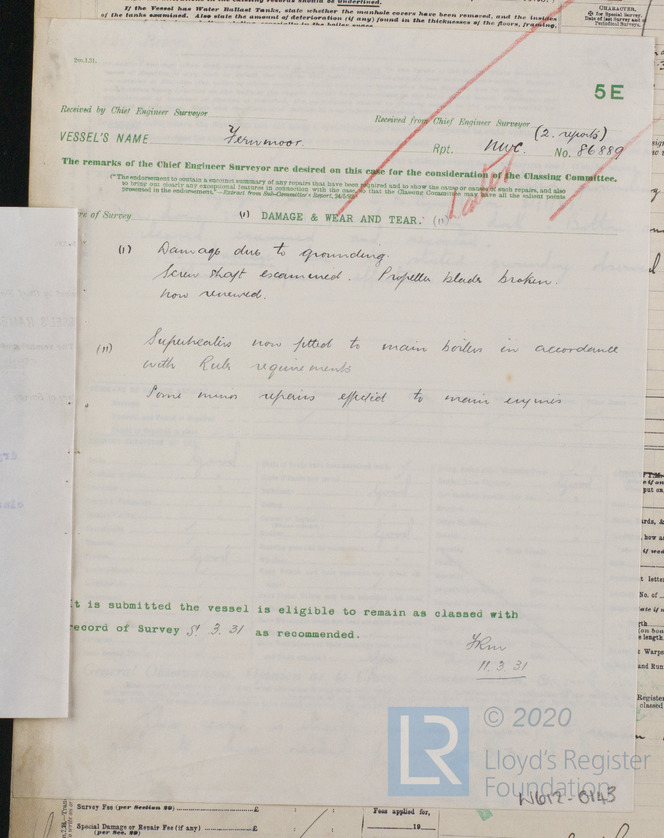 If the Vessel has Water Ballast Tanks, state whether the manhole covers have been removed, and the insides
of the tanks examined. Also state the amount of deterioration (if any) found in the thicknesses of the floors, framing,
CHARACTER.
for Special Survey.
Date of last Survey and
Periodical Surveys.
5E
Received by Chief Engineer Surveyor
Received from Chief Engineer Surveyor
VESSEL'S NAME Fernmoor
Rpt. NWC. (2 reports) No. 86889
The remarks of the Chief Engineer Surveyor are desired on this case for the consideration of the Classing Committee.
("The endorsement to contain a succinct summary of any repairs that have been required and to show the cause or causes of such repairs, and also
to bring out clearly any exceptional features in connection with the case, so that the Classing Committee may have all the salient points
presented in the endorsement."—Extract from Sub-Committee's Report,
re of Survey (1) DAMAGE & WEAR AND TEAR. (11)
(1) Damage due to grounding.
Screw shaft examined. Propeller blades broken.
now renewed.
(11) Superheaters now fitted to main boilers in accordance
with Rule requirements
Some minor repairs effected to main engines
It is submitted the vessel is eligible to remain as classed with
record of Survey 3.31 as recommended.
11.3.31
LR
© 2020
Lloyd's Register
Foundation
W612-0143
Survey Fee (per Section 29) £ : :
Special Damage or Repair Fee (if any) £
(per Sec. 29)
Fees applied for,
19